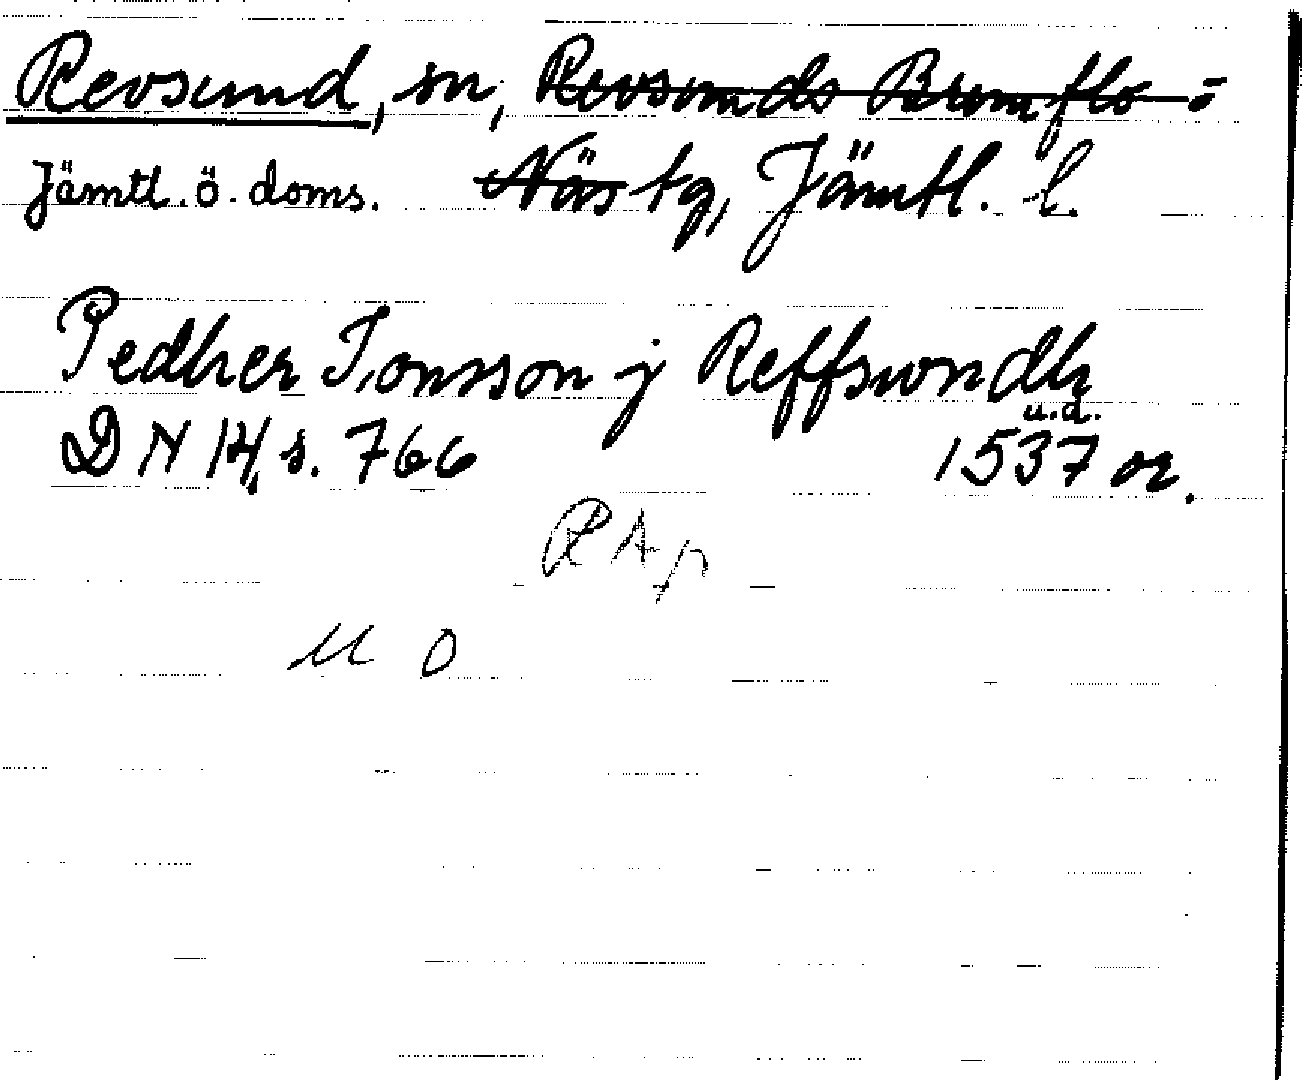 Revsund, sn, Revsunds Brunflo o
Jämtl. ö. doms. Näs tg, Jämtl. l.
Pedher Jonsson j Reffswndh
u.d.
DN 14, s. 766 1537 or.
RAp
U O